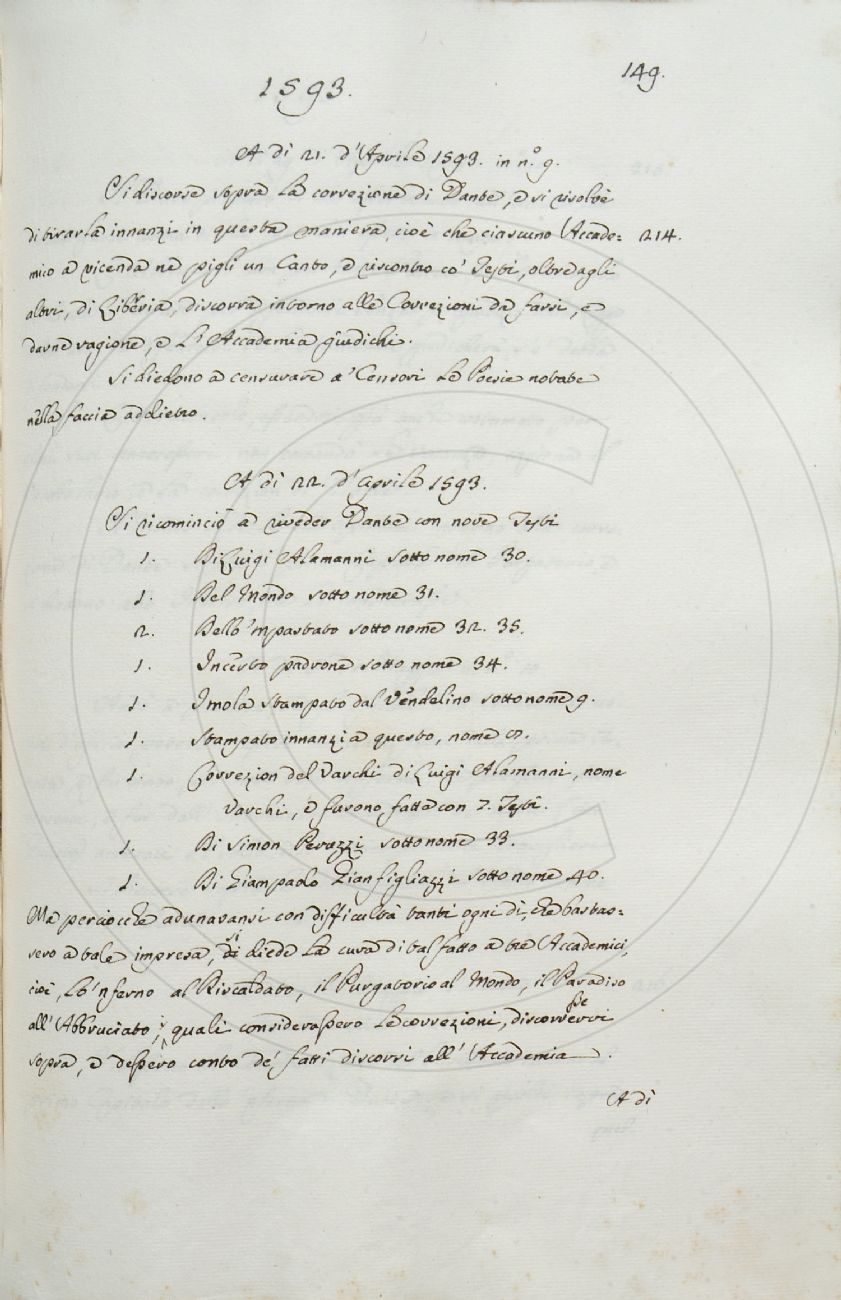 149.
1593.
A dì 21. d'Aprile 1593. in n.° 9.
Si discorse sopra la correzione di Dante, e si risolvè
di tirarla innanzi in questa maniera, cioè che ciascuno Accade= 214.
mico a vicenda ne pigli un Canto, e riscontro co' Testi, oltre agli
altri, di Libreria, discorra intorno alle Correzioni da farsi, e
darne ragione, e l'Accademia giudichi.
Si diedono a censurare a' Censori le Poesie notate
nella faccia addietro.
A dì 22. d'Aprile 1593.
Si ricominciò a riveder Dante con nove Testi
1. Di Luigi Alamanni sotto nome 30.
1. Del Mondo sotto nome 31.
2. Dello 'mpastato sotto nome 32. 35.
1. Incerto padrone sotto nome 34.
1. Imola stampato dal Vendelino sotto nome 9.
1. Stampato innanzi a questo, nome
1. Correzion del Varchi di Luigi Alamanni, nome
Varchi, e furono fatte con 7. Testi.
1. Di Simon Peruzzi sotto nome 33.
1. Di Giampaolo Gianfigliazzi sotto nome 40.
Ma perciocchè adunavansi con difficultà tanti ogni dì, che bastas=
sero a tale impresa, si diede la cura di tal fatto a tre Accademici,
cioè, lo 'nferno al Riscaldato, il Purgatorio al Mondo, il Paradiso
all'Abbruciato, i quali considerassero le correzioni, discorresservi
sopra, e dessero conto de' fatti discorsi all'Accademia.
A dì